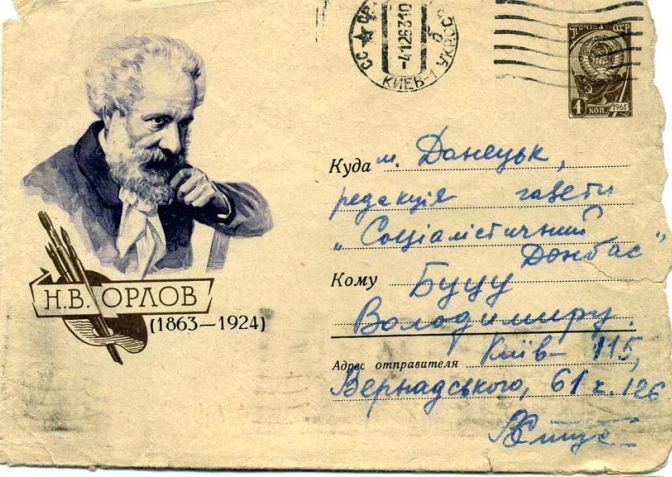 КИЕВ-1 УКР.ССР
ПОЧТА СССР
4 КОП. 1961
Н.В. ОРЛОВ
(1863—1924)
Куда м. Донецьк,
редакція газети
„Соціалістичний
Донбас"
Кому Буцу
Володимиру.
Адрес отправителя Київ–115,
Вернадського, 61 к. 126
ВСтус